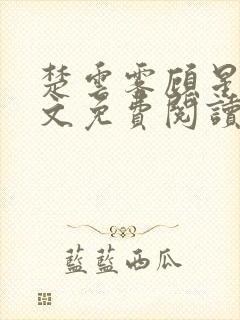 楚雲霽顧星
文免費閱讀
藍藍西瓜